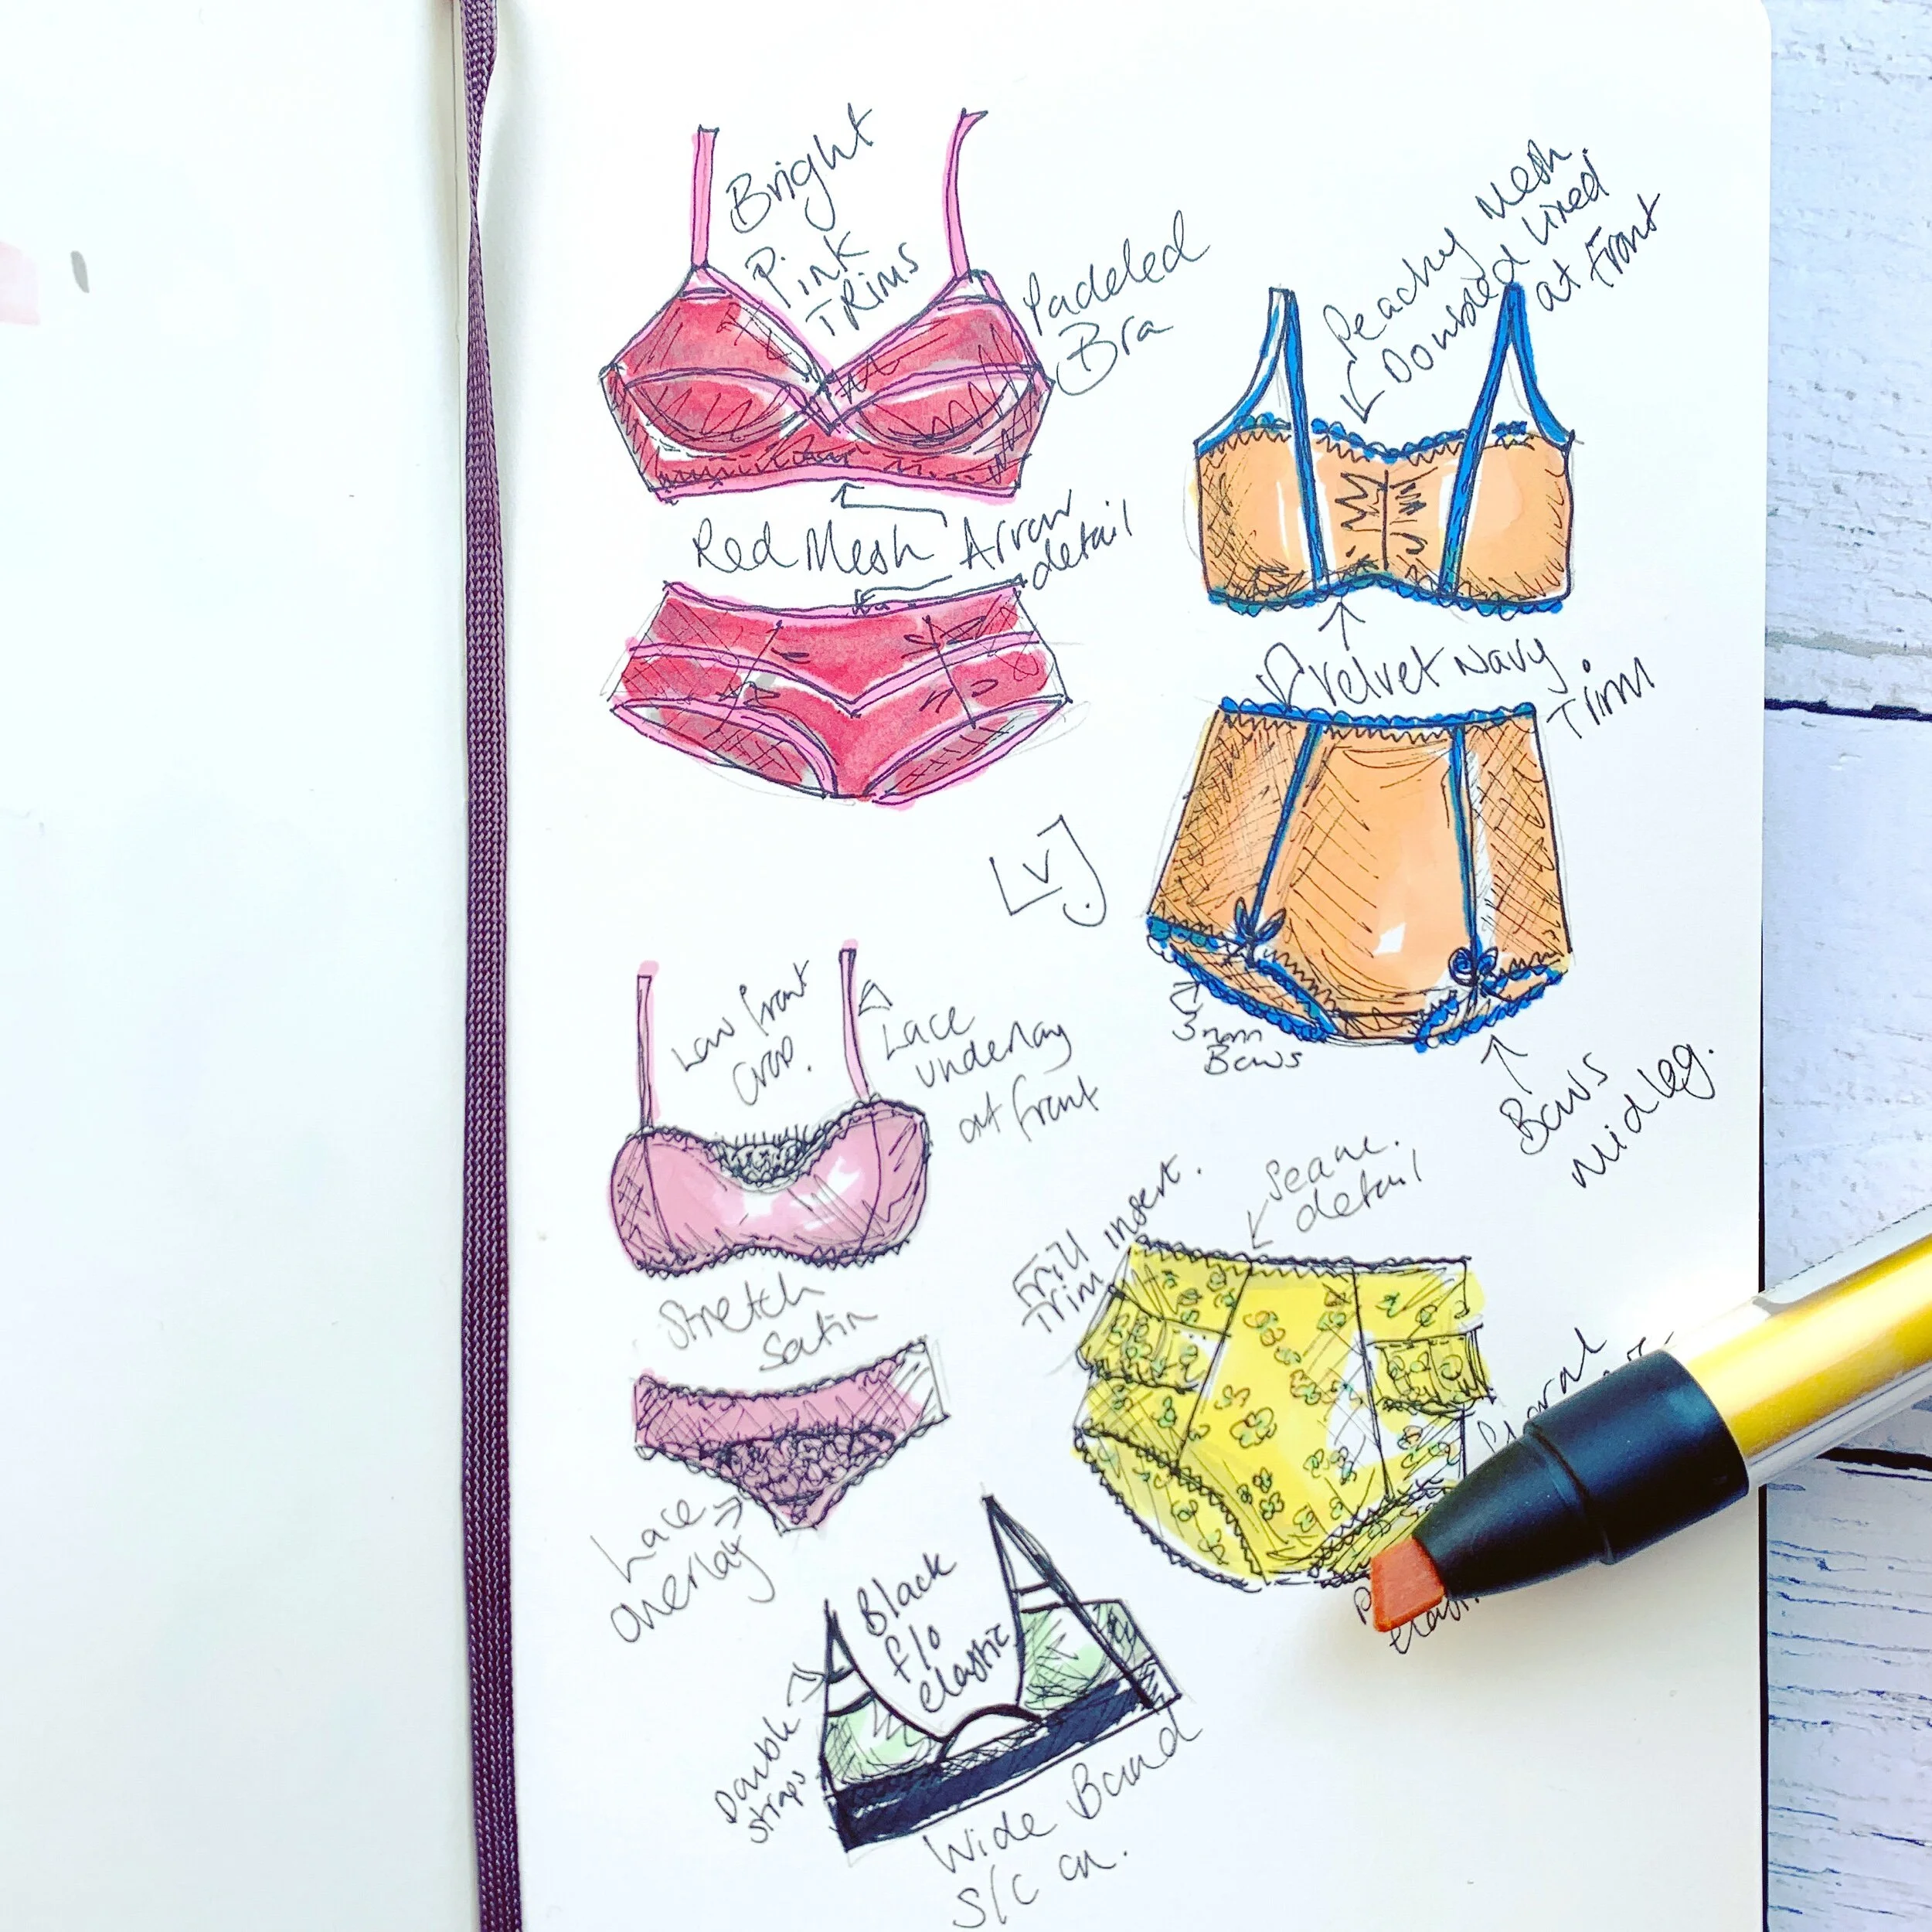 Bright
Pink
TRims
Padded
Bra
Red Mesh
Arrow
detail
Peachy Mesh.
Doubled Lined
at Front
Velvet Navy
Trim
3mm
Bows
Bows
Mid Leg.
LvJ
Low front
crop.
Lace
underlay
at front
Stretch
Satin
Lace
overlay
Frill insert.
Trim
Seam.
detail
Floral
Black
f/o
elastic
Double
straps
Wide Band